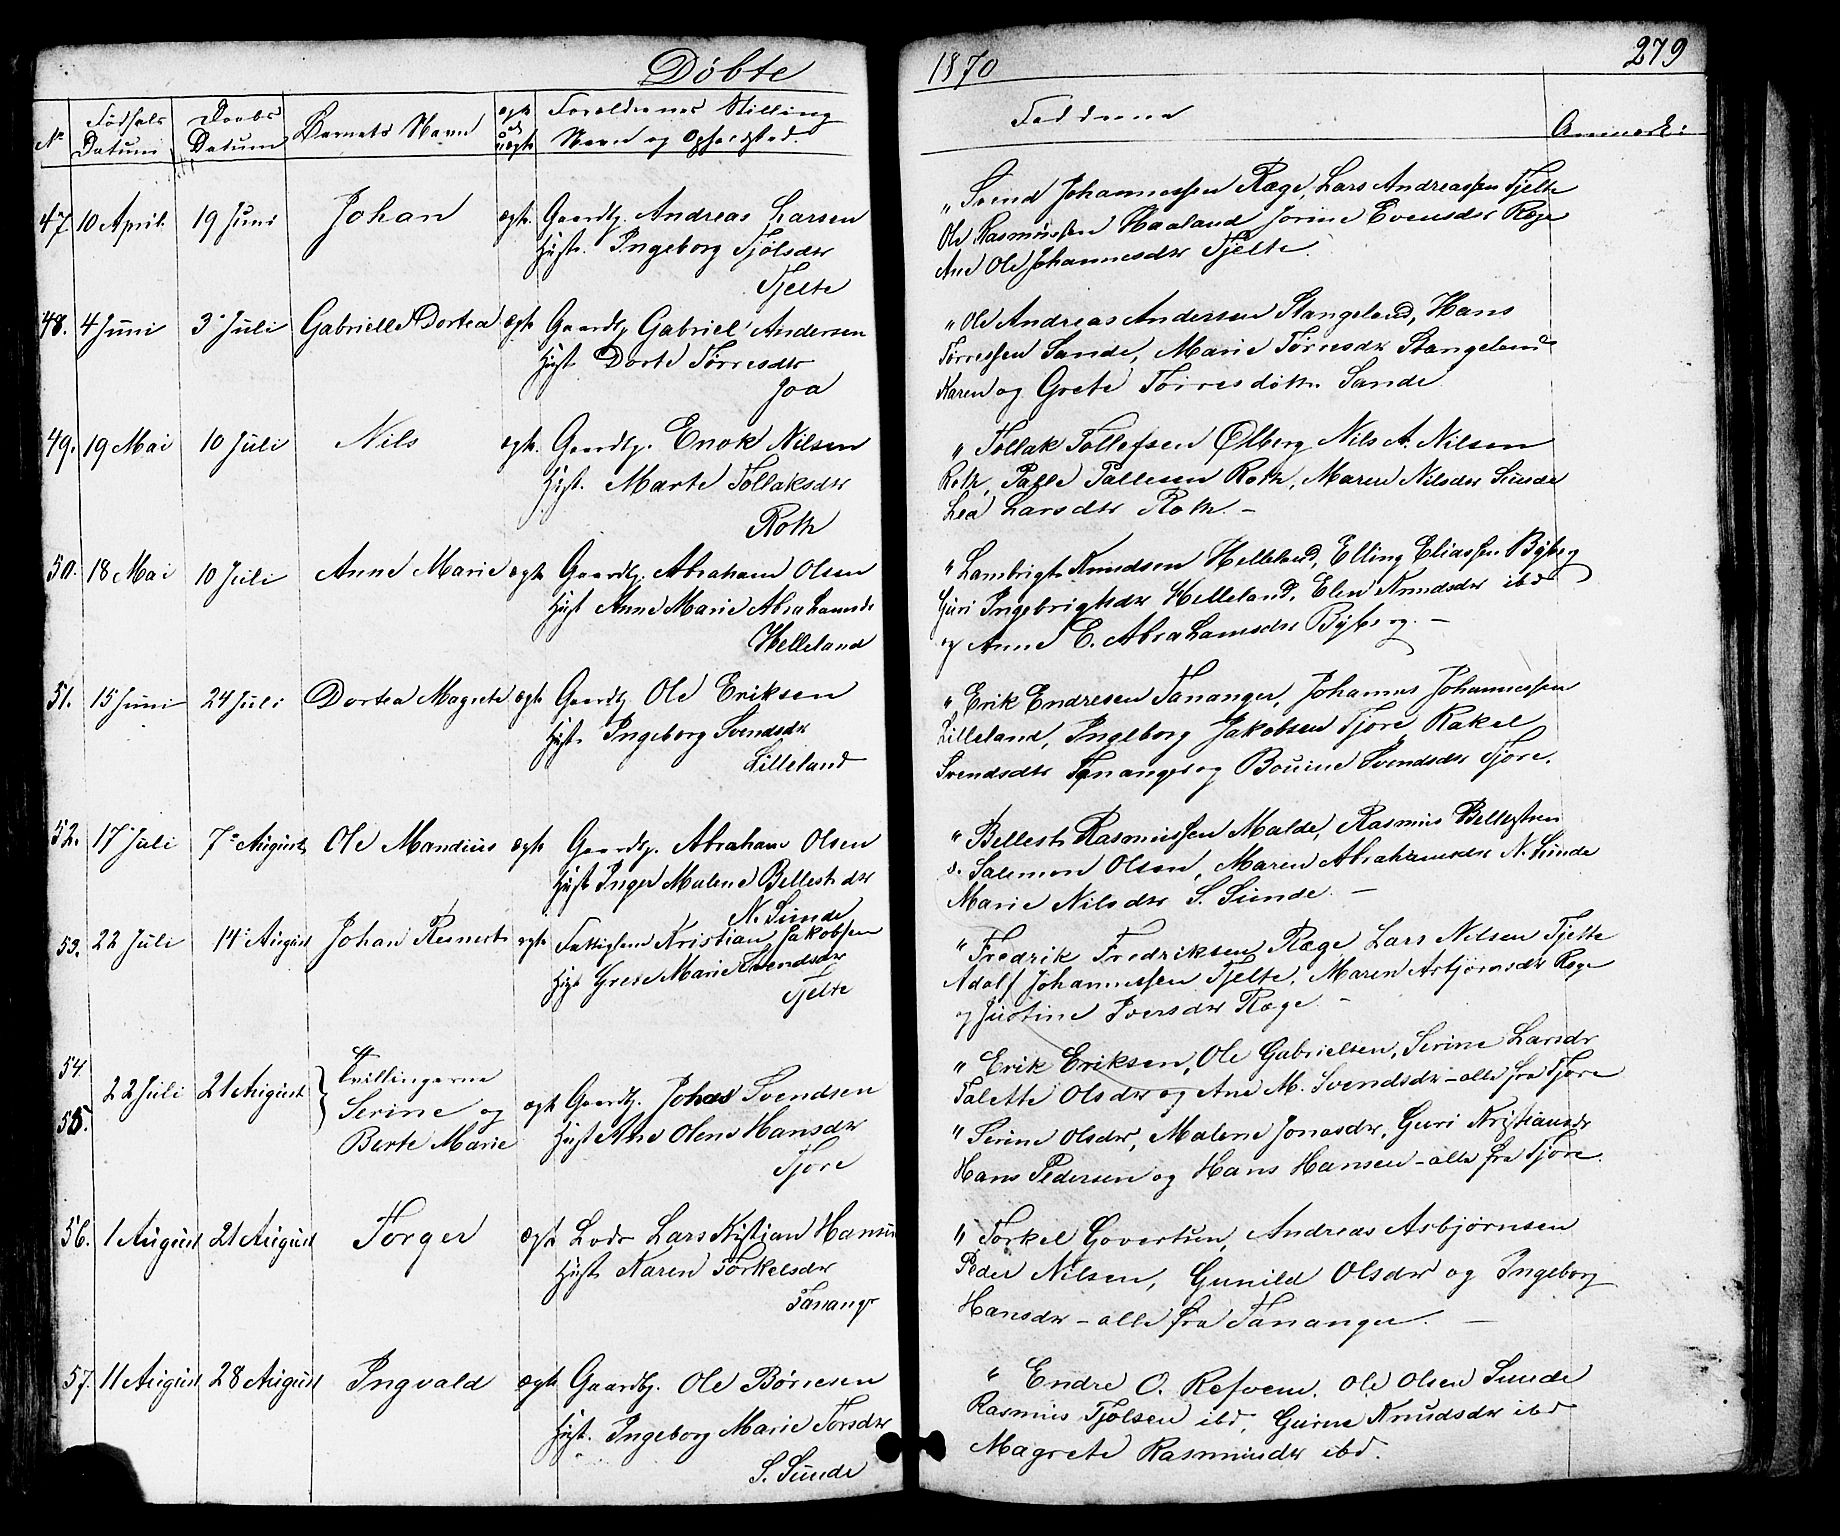 Döbte
1870
279
No
Födsels Datum
Daabs Datum
Barnets Navn
ægte ell uægte
Forældrenes Stilling
Navn og Opholdsted.
Faddrene
Anmærk:
47. 10 April. 19 Juni Johan ægte Gaardbr. Andreas Larsen
Hust. Ingeborg Tjølsdtr
Tjelte
„ Svend Johannessen Ræge, Lars Andreassen Tjelte
Ole Rasmussen Haaland Jorine Evensdtr Ræge
Ane Ole Johannesdtr Tjelte.
48. 4 Juni 3 Juli Gabrielle Dortea ægte Gaardbr Gabriel Andersen
Hust. Dorte Tørresdtr
Joa
„ Ole Andreas Andersen Stangeland, Hans
Tørressen Sande, Marie Tørresdtr Stangeland
Karen og Grete Tørresdøttr. Sande
49. 19 Mai 10 Juli Nils ægte. Gaardbr. Enok Nilsen
Hust. Marte Tollaksdtr
Roth
„ Tollak Tollefsen Ølberg Nils A. Nilsen
Roth, Palle Pallesen Roth, Maren Nilsdtr Sunde
Lea Larsdtr Roth. –
50. 18 Mai 10 Juli Anne Marie ægte Gaardbr. Abraham Olsen
Hust Anne Marie Abrahamsdr
Helleland
„ Lambrigt Knudsen Helleland, Elling Eliassen Byberg
Guri Ingebrigtsdtr Helleland, Elen Knudsdtr ibd
og Anne E. Abrahamsdtr Byberg. –
51. 15 Juni 24 Juli Dortea Magrete ægte Gaardbr Ole Eriksen
Hust. Ingeborg Svendsdtr
Lilleland
„ Erik Endresen Tananger, Johannes Johannessen
Lilleland, Ingeborg Jakobsen Tjore Rakel
Svendsdtr Tananger og Bouine Svendsdtr Tjore.
52. 17 Juli 7 August Ole Mandius ægte Gaardbr. Abraham Olsen
Hust Inger Malene Bellestdtr
N. Sunde
„ Bellest Rasmussen Malde, Rasmus Bellestsen
s. Salemon Olsen, Maren Abrahamsdtr N. Sunde
Marie Nilsdtr S. Sunde. –
53. 22 Juli 14 August Johan Reinert ægte Fattiglem Kristian Jakobsen
Hust Grese Marie Svendsdtr
Tjelte
„ Fredrik Fredriksen Ræge Lars Nilsen Tjelte
Adolf Johannessen Tjelte, Maren Asbjørnsdtr Ræge
og Justine Iversdtr Ræge. –
54. 55. 22 Juli 21 August Tvillingerne
Serine og
Berte Marie
ægte Gaardbr. Johas Svendsen
Hust Ane Olene Hansdtr
Tjore
„ Erik Eriksen, Ole Gabrielsen, Serine Larsdr
Talette Olsdtr og Ane M. Svendsdtr – alle fra Tjore
„ Serine Olsdtr, Malene Jonasdtr, Guri Kristiansdr
Hans Pedersen og Hans Hansen – alle fra Tjore.
56. 1 August 21 August Torger ægte Lods Lars Kristian Hansen
Hust Karen Torkelsdtr
Tanangr
„ Torkel Govertsen, Andreas Asbjørnsen
Peder Nilsen, Gunild Olsdtr og Ingeborg
Hansdtr – alle fra Tananger. –
57. 11 August 28 August Ingvald ægte Gaardbr. Ole Børresen
Hust. Ingeborg Marie Torsdtr
S. Sunde
„ Endre O. Refvem. Ole Olsen Sunde
Rasmus Tjølsen ibd, Gurine Knudsdtr ibd
Magrete Rasmusdtr ibd.